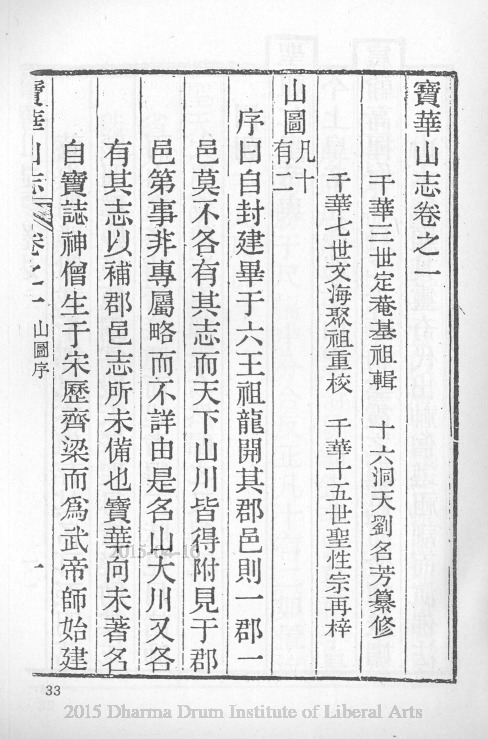 寶華山志卷之一
千華三世定菴基祖輯　十六洞天劉名芳纂修
千華七世文海聚祖重校　千華十五世聖性宗再梓
山圖凡十有二
序曰自封建畢于六王祖龍開其郡邑則一郡一
邑莫不各有其志而天下山川皆得附見于郡
邑第事非專屬略而不詳由是名山大川又各
有其志以補郡邑志所未備也寶華向未著名
自寶誌神僧生于宋歷齊梁而爲武帝師始建
寶華山志　卷之一　山圖序　一
33
2015 Dharma Drum Institute of Liberal Arts